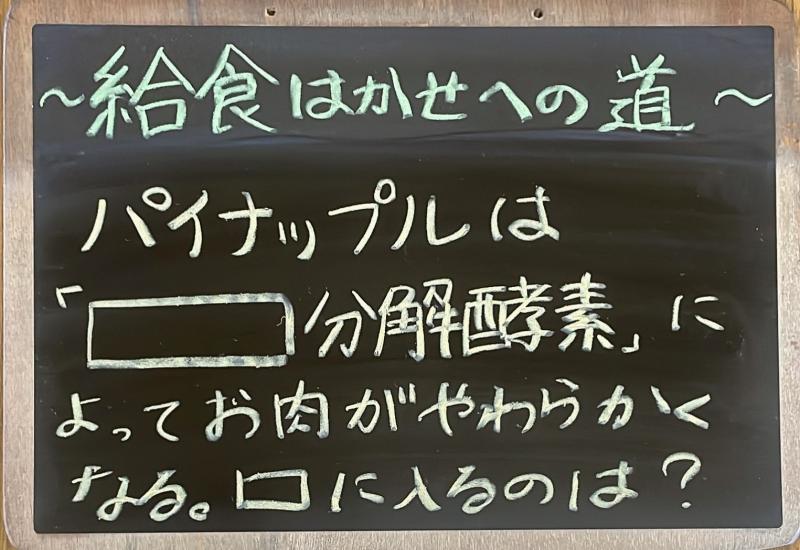 ～給食はかせへの道～
パイナップルは
「□分解酵素」に
よってお肉がやわらかく
なる。□に入るのは？